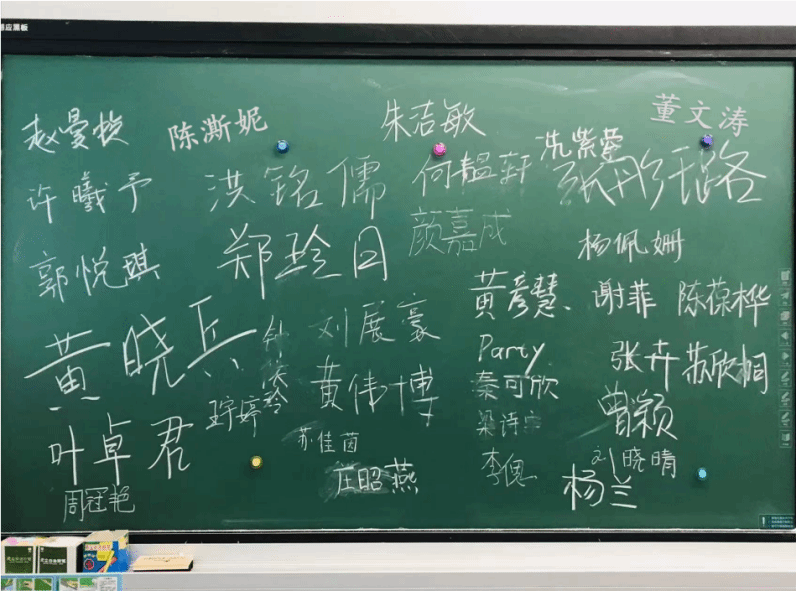 感应黑板
赵曼旋
陈澌妮
朱洁敏
董文涛
冼紫莹
许曦予
洪铭儒
何韫轩
张彤路
颜嘉成
郭悦琪
郑玲日
杨佩姗
黄彦慧、
谢菲
陈葆桦
黄晓兵
刘展豪
Party
张卉
苏欣桐
黄伟博
秦可欣
曾颖
叶卓君
婷
苏佳茵
梁诗
刘晓晴
周冠艳
庄昭燕
李偲
杨兰